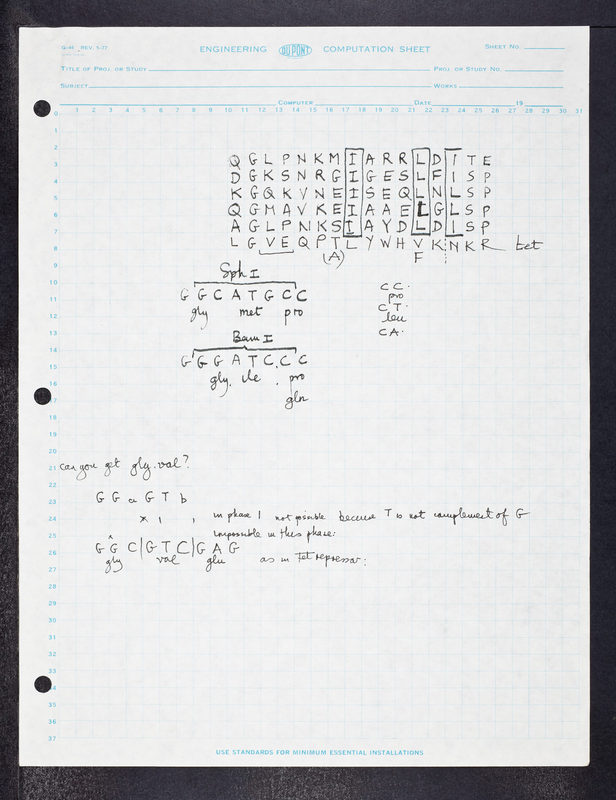 G-44 REV. 5-77
ENGINEERING DU PONT COMPUTATION SHEET
SHEET NO.
TITLE OF PROJ. OR STUDY
PROJ. OR STUDY NO.
SUBJECT
WORKS
COMPUTER
DATE
19
0 1 2 3 4 5 6 7 8 9 10 11 12 13 14 15 16 17 18 19 20 21 22 23 24 25 26 27 28 29 30 31
1
2
3
4
5
6
7
8
9
10
11
12
13
14
15
16
17
18
19
20
21
22
23
24
25
26
27
28
29
30
31
32
33
34
35
36
37
Q G L P N K M I A R R L D I T E
D G K S N R G I G E S L F I S P
K G Q K V N E I S E Q L N L S P
Q G M A V K E I A A E L G L S P
A G L P N K S I A Y D L D I S P
L G V E Q P T L Y W H V K N K R tet
(A) F
Sph I
G G C A T G C C
gly met pro
CC·
pro
CT·
leu
CA·
Bam I
G G G A T C C C
gly. ile . pro
gln
can you get gly.val?
G G a G T b
× 1 , in phase 1 not possible because T is not complement of G
impossible in this phase:
G G C | G T C | G A G
gly val glu as in Tet repressor:
USE STANDARDS FOR MINIMUM ESSENTIAL INSTALLATIONS